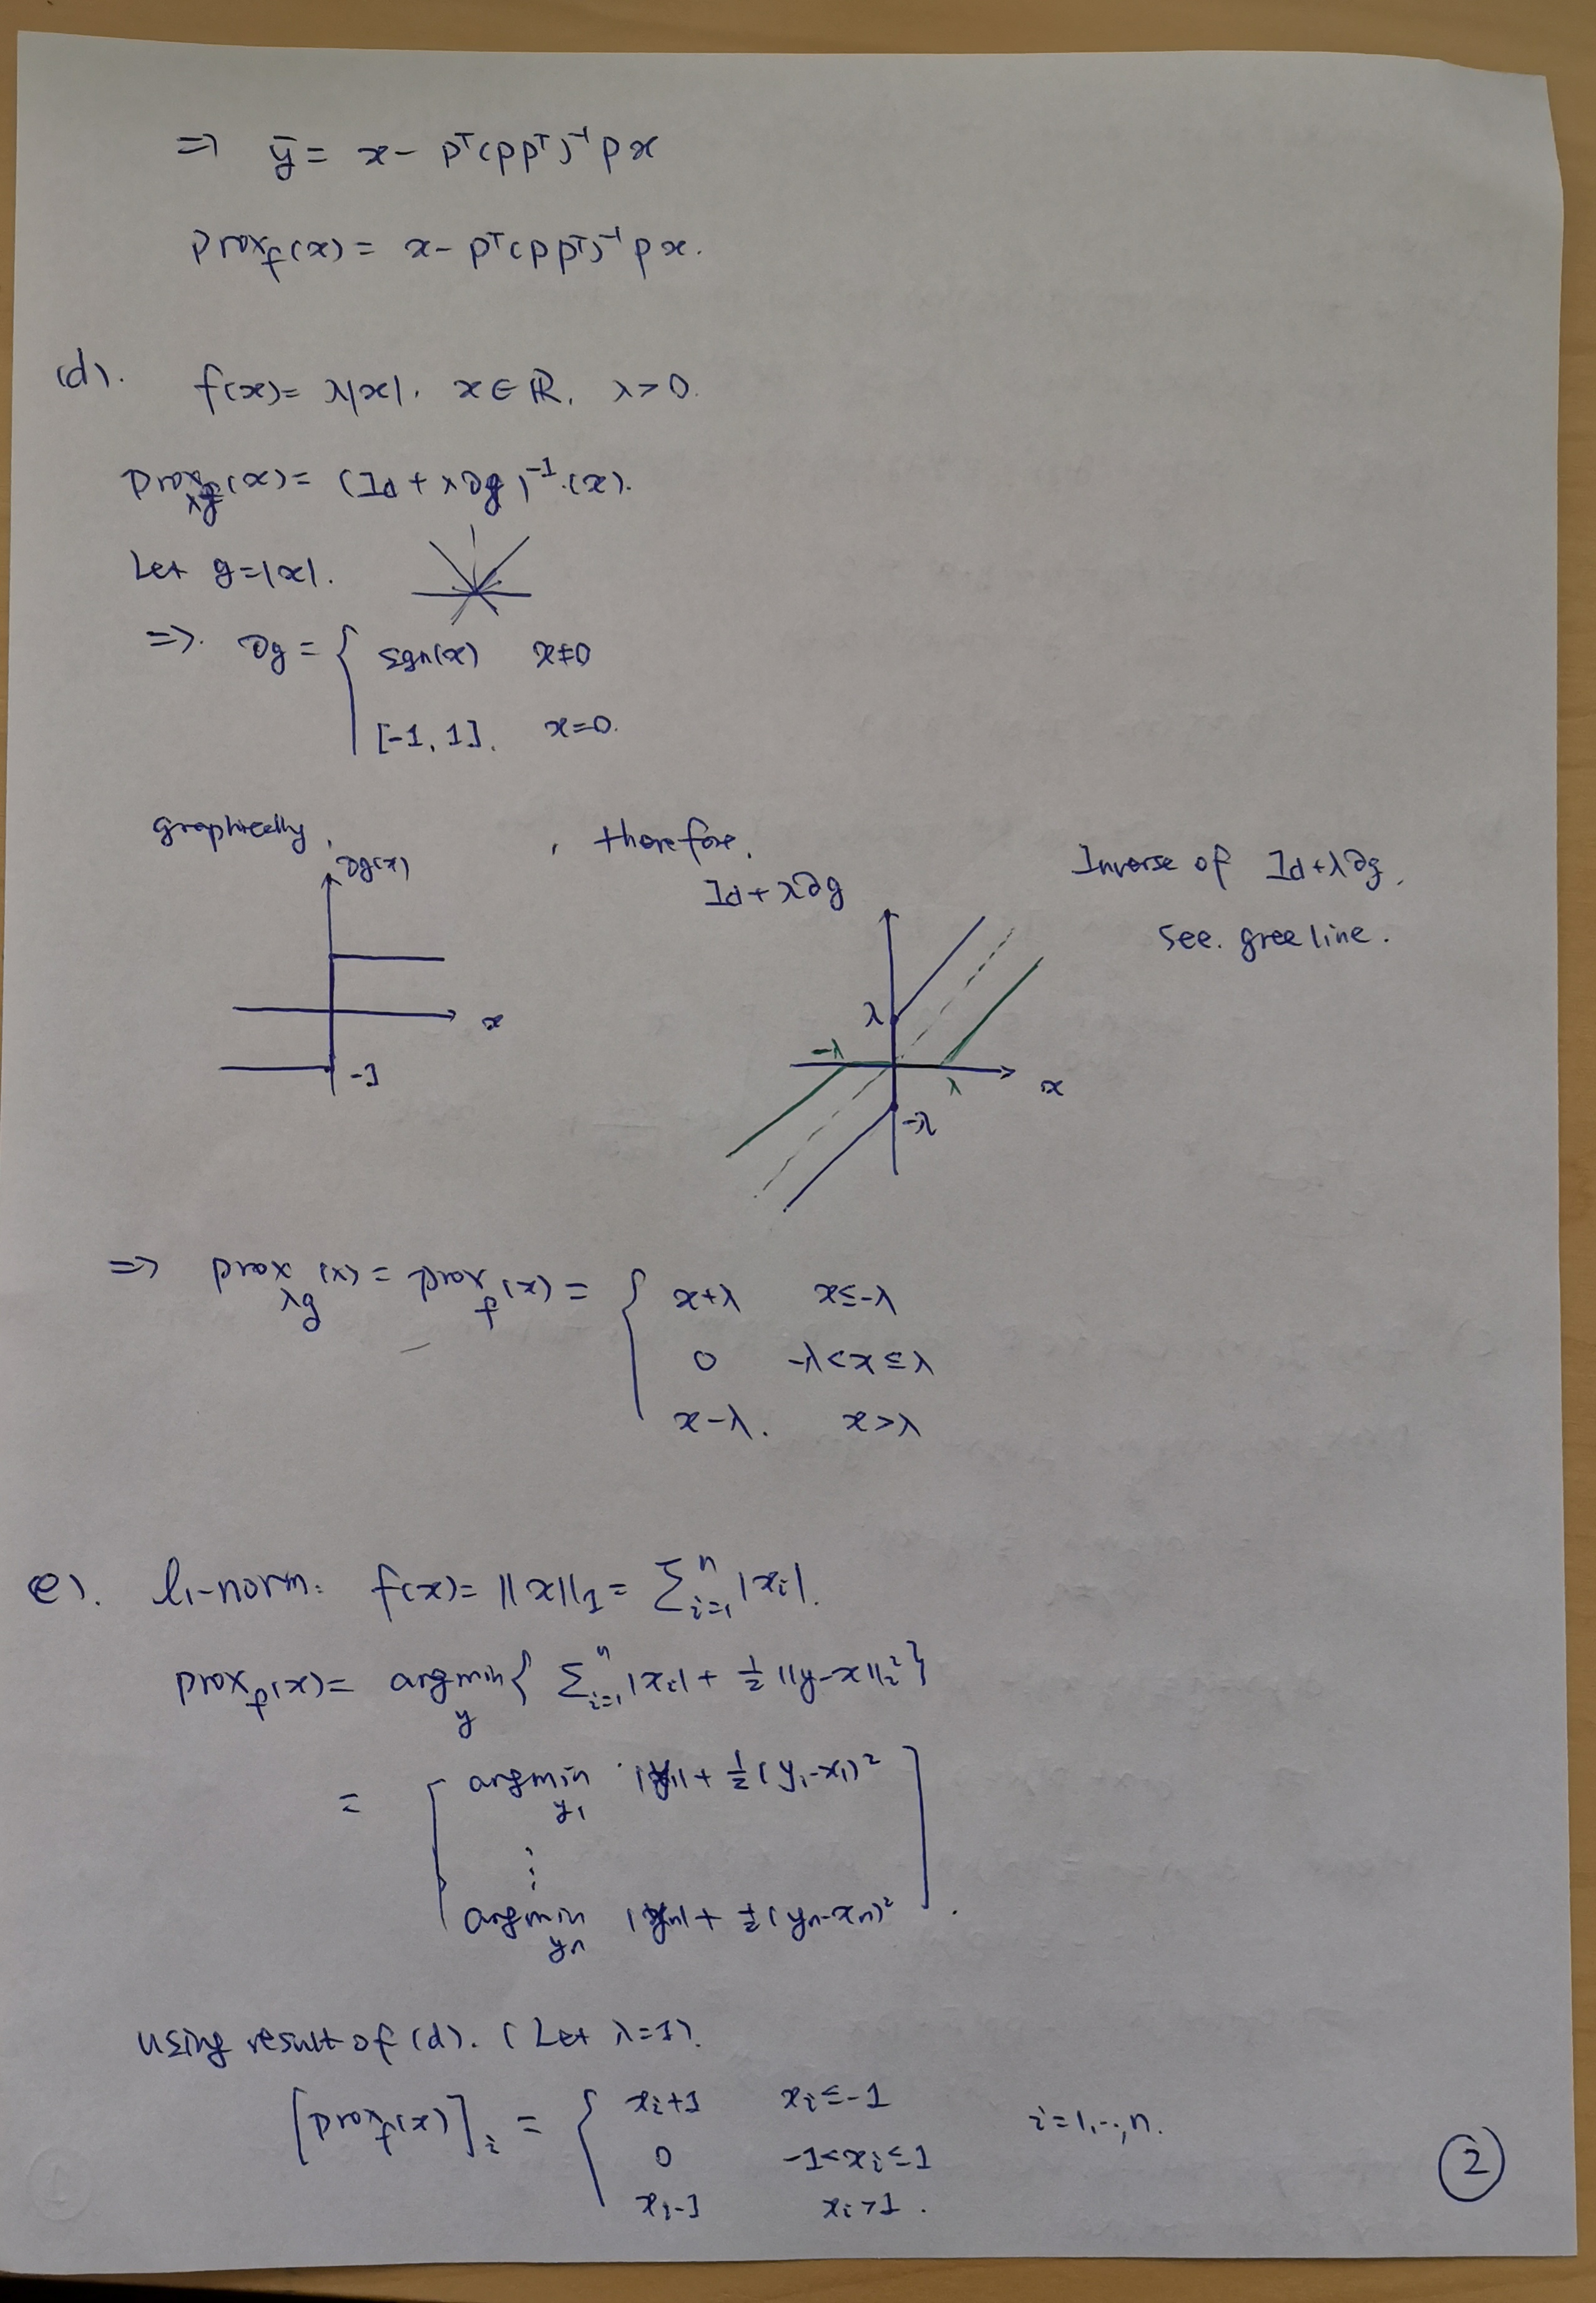 ⇒ ȳ = x - Pᵀ(PPᵀ)⁻¹Px
Prox_f(x) = x - Pᵀ(PPᵀ)⁻¹Px.
(d). f(x) = λ|x|. x ∈ ℝ, λ > 0.
Prox_λg(x) = (Id + λ∂g)⁻¹(x).
Let g=|x|.
⇒. ∂g = { sgn(x) x≠0
[-1, 1]. x=0.
graphically, , therefore.
∂g(x)
x
-1
Id + λ∂g
λ
-λ
λ
x
-λ
Inverse of Id+λ∂g,
See. gree line.
⇒ prox_λg(x) = prox_f(x) = { x+λ x≤-λ
0 -λ<x≤λ
x-λ. x>λ
e). l₁-norm: f(x) = ||x||₁ = Σⁿᵢ₌₁ |xᵢ|.
prox_f(x) = argmin_y { Σⁿᵢ₌₁ |xᵢ| + ½ ||y-x||₂² }
= [ argmin_y₁ |y₁| + ½ (y₁-x₁)²
⋮
argmin_yₙ |yₙ| + ½ (yₙ-xₙ)² ].
Using result of (d). (Let λ=1).
[prox_f(x)]ᵢ = { xᵢ+1 xᵢ≤-1 i=1,..,n.
0 -1<xᵢ≤1
xᵢ-1 xᵢ>1.
2